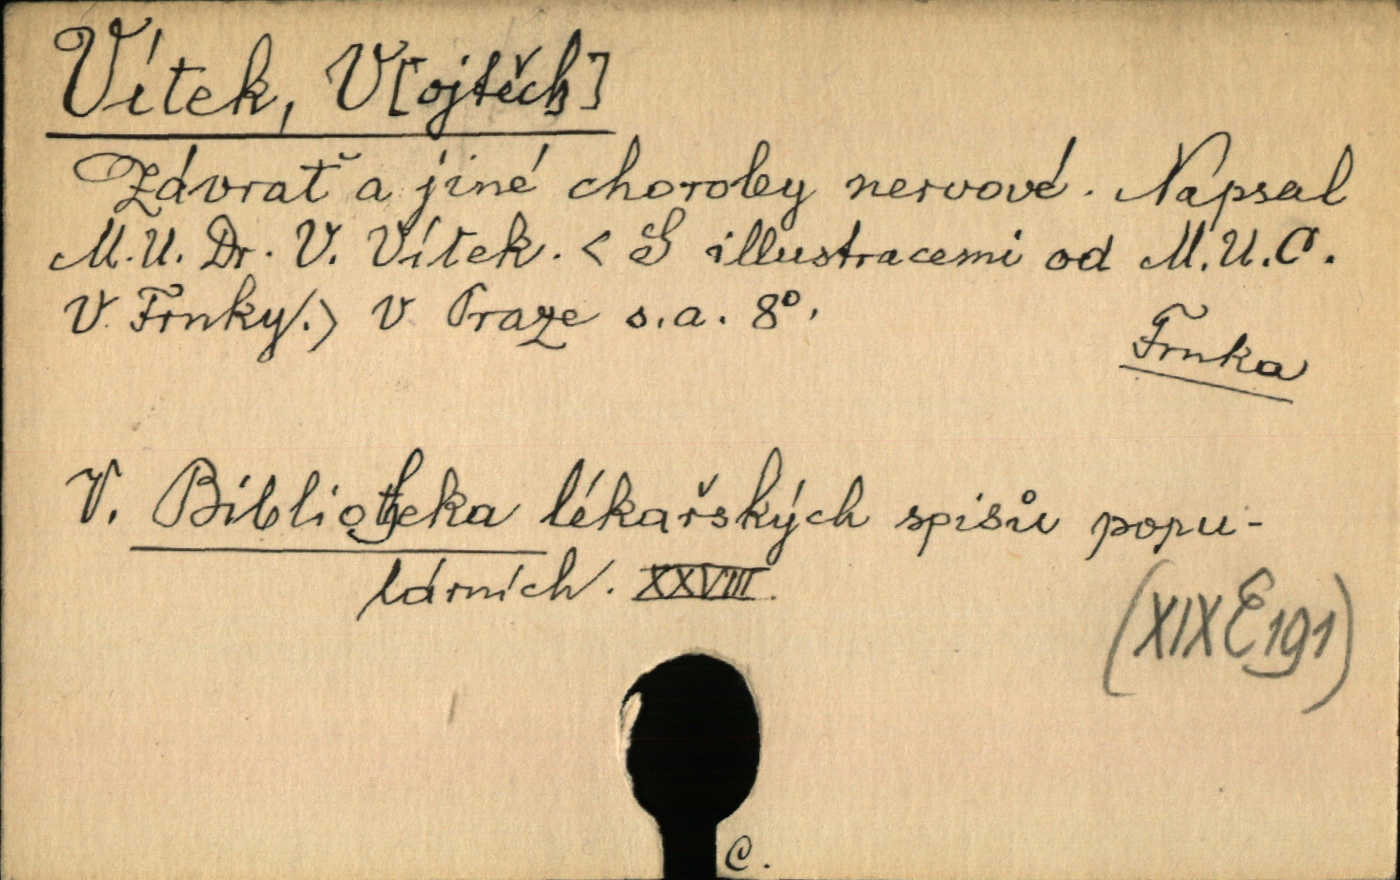 Vítek, V[ojtěch]
Závrať a jiné choroby nervové. Napsal
M.U.Dr. V. Vítek. < S illustracemi od M.U.C.
V. Frnky/.> V Praze s.a. 8°.
Frnka
V. Bibliotheka lékařských spisů popu-
lárních. XXVIII.
(XIX E 191)
C.